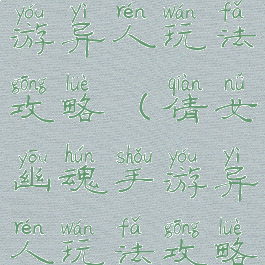 yóu yì rén wán fǎ
游异人玩法
gōng lüè qiàn nǚ
攻略(倩女
yōu hún shǒu yóu yì
幽魂手游异
rén wán fǎ gōng lüè
人玩法攻略